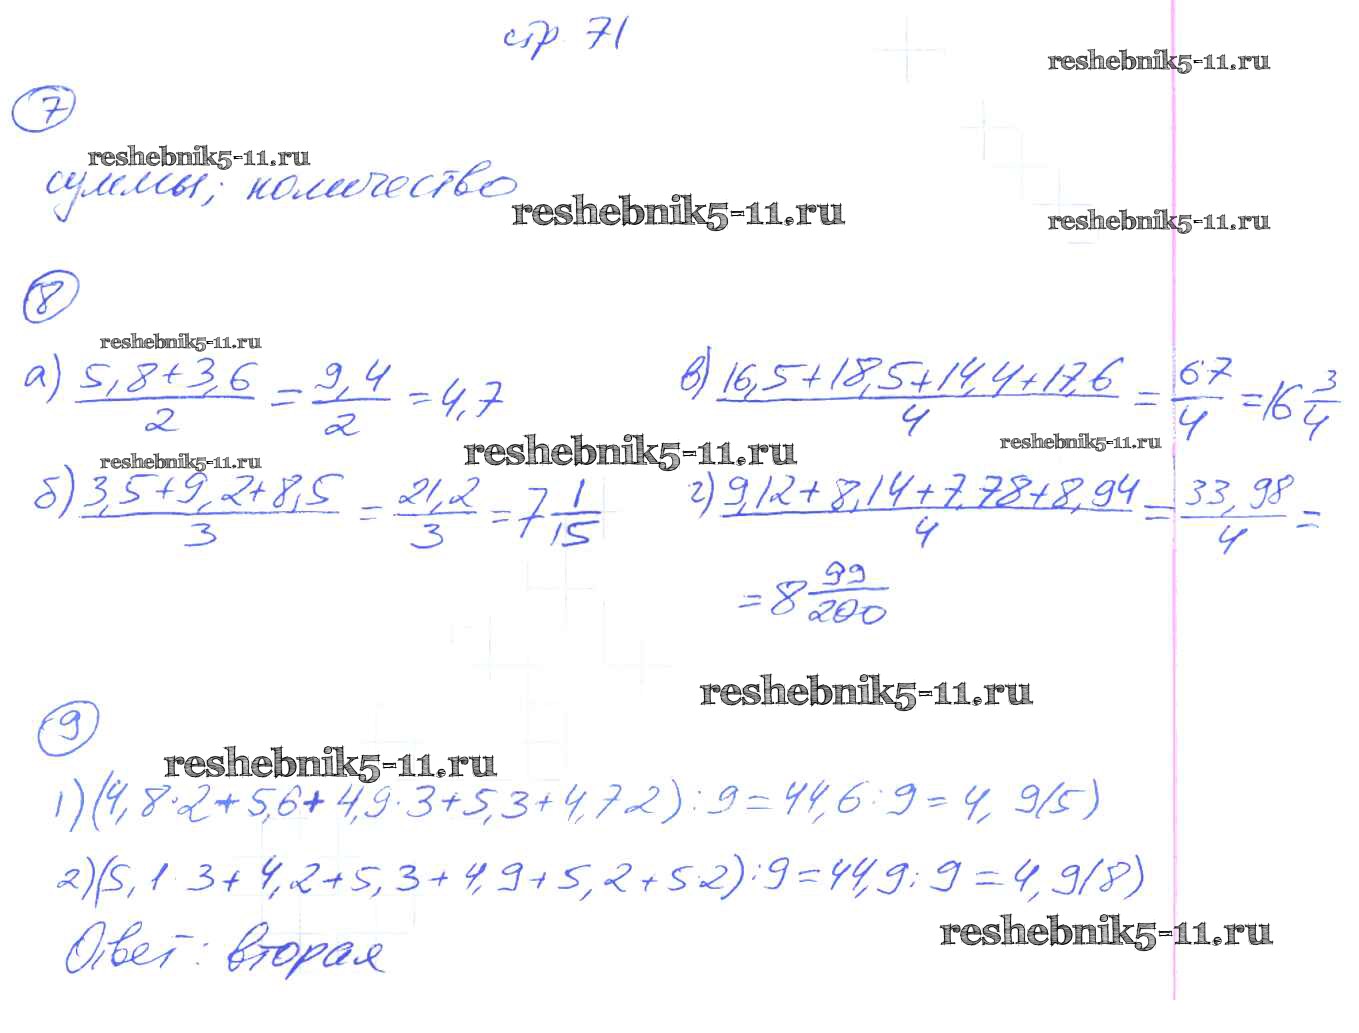 стр 71
reshebnik5-11.ru
7
reshebnik5-11.ru
суммы; количество
reshebnik5-11.ru
reshebnik5-11.ru
8
reshebnik5-11.ru
а) (5,8+3,6)/2 = 9,4/2 = 4,7
в) (16,5+18,5+14,4+17,6)/4 = 67/4 = 16 3/4
reshebnik5-11.ru
reshebnik5-11.ru
reshebnik5-11.ru
б) (3,5+9,2+8,5)/3 = 21,2/3 = 7 1/15
г) (9,12+8,14+7,78+8,94)/4 = 33,98/4 =
= 8 99/200
reshebnik5-11.ru
9
reshebnik5-11.ru
1) (4,8·2+5,6+4,9·3+5,3+4,7·2):9=44,6:9=4,9(5)
2) (5,1·3+4,2+5,3+4,9+5,2+5·2):9=44,9:9=4,9(8)
reshebnik5-11.ru
Ответ: вторая